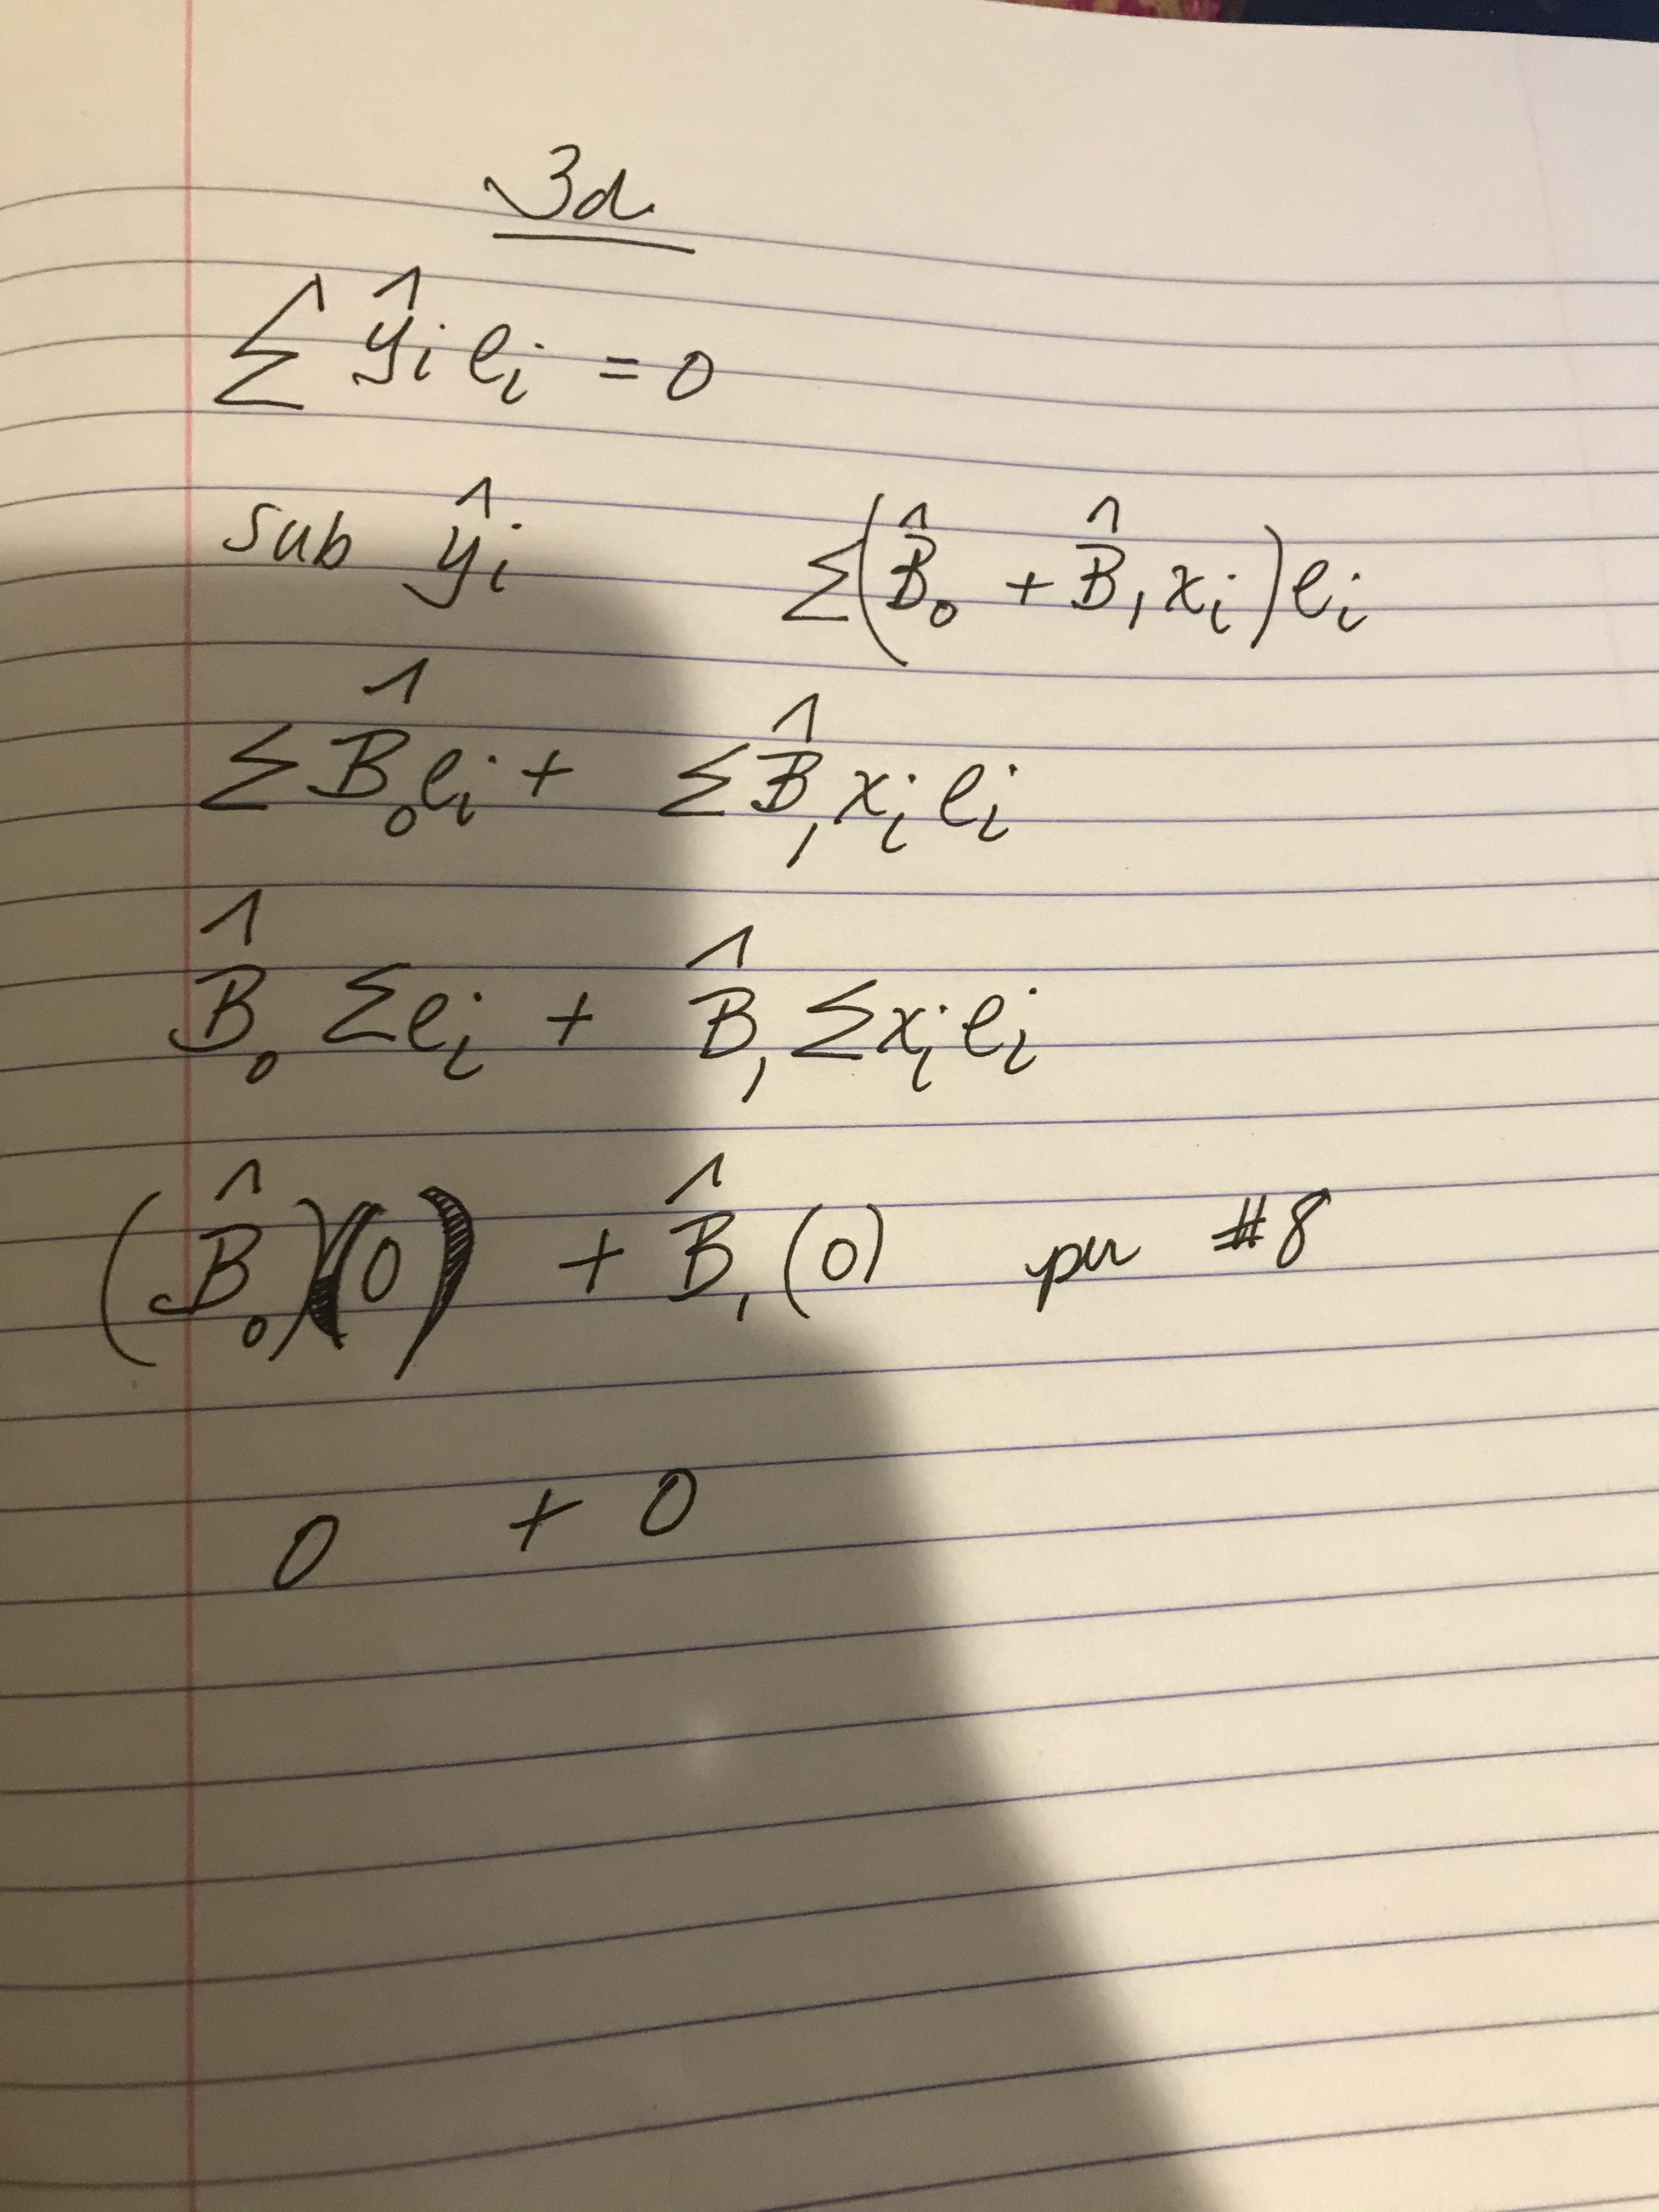 3d
∑ ŷᵢ eᵢ = 0
sub ŷᵢ ∑(B̂₀ + B̂₁xᵢ)eᵢ
∑B̂₀eᵢ + ∑B̂₁xᵢeᵢ
B̂₀ ∑eᵢ + B̂₁ ∑xᵢeᵢ
(B̂₀)(0) + B̂₁(0) per #8
0 + 0